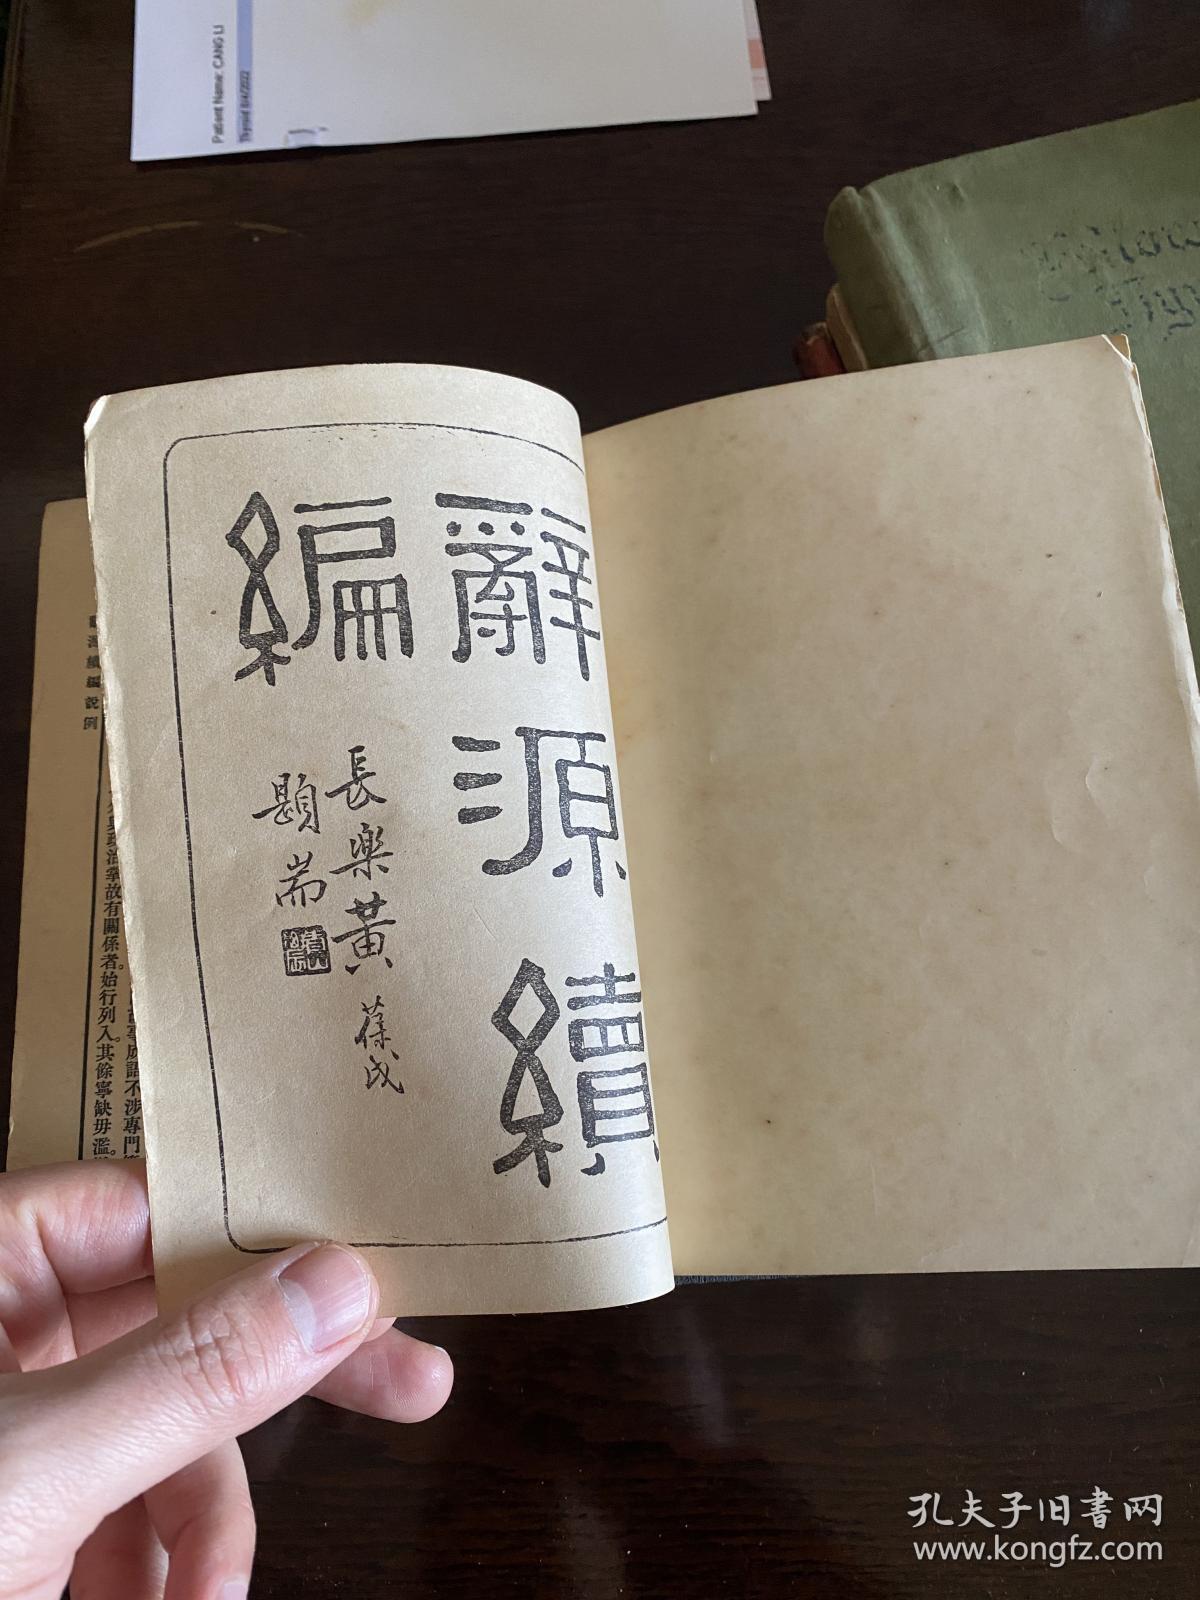 Patient Name: CANG LI
Thyroid 8/4/2022
辭源續
編
長樂黃葆戉
題耑
辭源續編說例
治掌故有關係者。始行列入。其餘寧缺毋濫。
成語不涉專門
孔夫子旧書网
www.kongfz.com